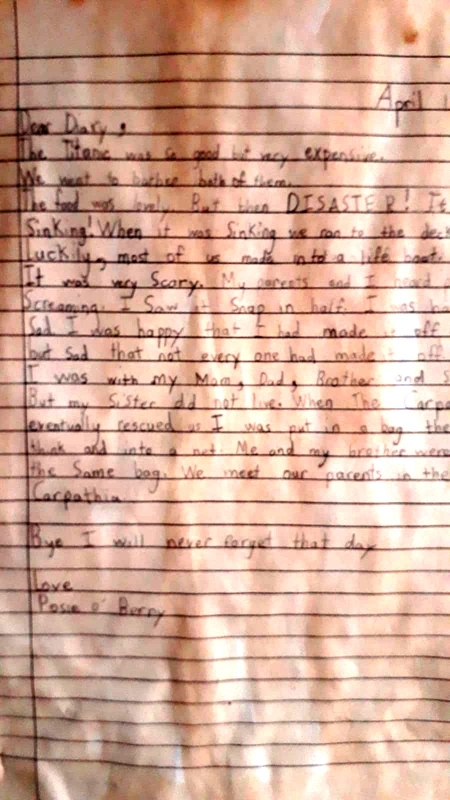 April 1
Dear Diary,
The Titanic was so good but very expensive.
We went to bather both of them.
The food was lovely. But then DISASTER! It
Sinking! When it was Sinking we ran to the deck
Luckily, most of us made into a life boat.
It was very Scary. My parents and I heard p
Screaming. I Saw it Snap in half. I was
Sad. I was happy that I had made it off
but Sad that not every one had made it off.
I was with my Mom, Dad, Brother and S
But my Sister did not live. When The Carpa
eventually rescued us I was put in a bag the
think and into a net. Me and my brother were
the Same bag. We meet our parents in the
Carpathia.
Bye I will never forget that day
Love
Posie o' Berry